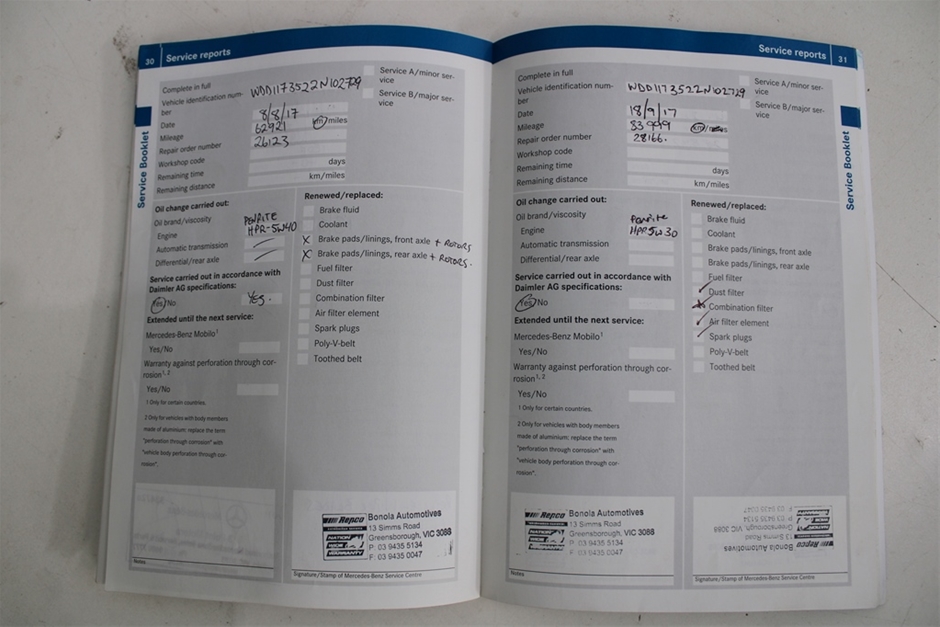 30 Service reports
Complete in full
Vehicle identification num-
ber
WDD1173522N102729
Date 8/8/17
Mileage 62921 km/miles
Repair order number 26123
Workshop code
Remaining time days
Remaining distance km/miles
Service A/minor ser-
vice
Service B/major ser-
vice
Service Booklet
Oil change carried out:
Oil brand/viscosity PENRITE
Engine HPR-5W40
Automatic transmission
Differential/rear axle
Service carried out in accordance with
Daimler AG specifications:
Yes/No YES.
Extended until the next service:
Mercedes-Benz Mobilo1
Yes/No
Warranty against perforation through cor-
rosion1, 2
Yes/No
1 Only for certain countries.
2 Only for vehicles with body members
made of aluminium: replace the term
"perforation through corrosion" with
"vehicle body perforation through cor-
rosion".
Notes
Renewed/replaced:
Brake fluid
Coolant
X Brake pads/linings, front axle + ROTORS
X Brake pads/linings, rear axle + ROTORS.
Fuel filter
Dust filter
Combination filter
Air filter element
Spark plugs
Poly-V-belt
Toothed belt
Repco
Bonola Automotives
13 Simms Road
Greensborough, VIC 3088
P: 03 9435 5134
F: 03 9435 0047
Signature/Stamp of Mercedes-Benz Service Centre
Service reports 31
Complete in full
Vehicle identification num-
ber
WDD1173522N102729
Date 18/9/17
Mileage 83999 km/miles
Repair order number 28166.
Workshop code
Remaining time days
Remaining distance km/miles
Service A/minor ser-
vice
Service B/major ser-
vice
Service Booklet
Oil change carried out:
Oil brand/viscosity Penrite
Engine HPR5W30
Automatic transmission
Differential/rear axle
Service carried out in accordance with
Daimler AG specifications:
Yes/No
Extended until the next service:
Mercedes-Benz Mobilo1
Yes/No
Warranty against perforation through cor-
rosion1, 2
Yes/No
1 Only for certain countries.
2 Only for vehicles with body members
made of aluminium: replace the term
"perforation through corrosion" with
"vehicle body perforation through cor-
rosion".
Repco
Bonola Automotives
13 Simms Road
Greensborough, VIC 3088
P: 03 9435 5134
F: 03 9435 0047
Notes
Renewed/replaced:
Brake fluid
Coolant
Brake pads/linings, front axle
Brake pads/linings, rear axle
Fuel filter
Dust filter
Combination filter
Air filter element
Spark plugs
Poly-V-belt
Toothed belt
Repco
Bonola Automotives
13 Simms Road
Greensborough, VIC 3088
P: 03 9435 5134
F: 03 9435 0047
Signature/Stamp of Mercedes-Benz Service Centre